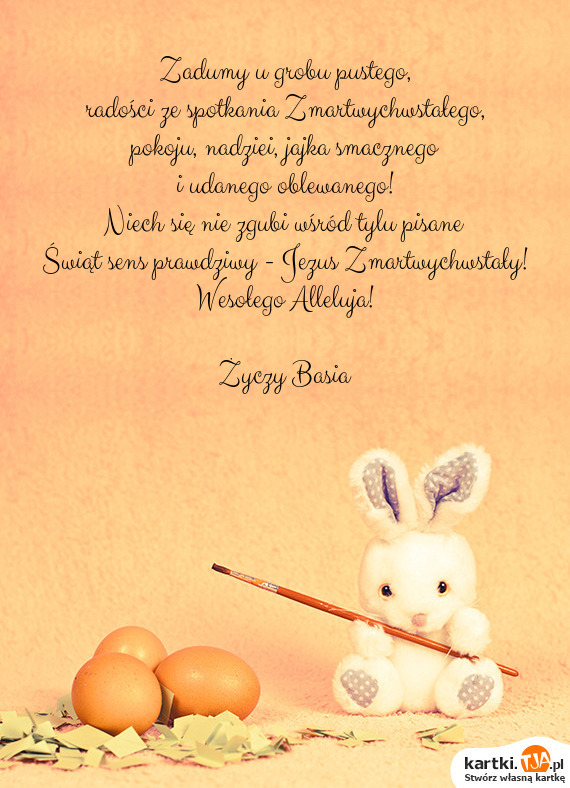 Zadumy u grobu pustego,
radości ze spotkania Zmartwychwstałego,
pokoju, nadziei, jajka smacznego
i udanego oblewanego!
Niech się nie zgubi wśród tylu pisane
Świąt sens prawdziwy - Jezus Zmartwychwstały!
Wesołego Alleluja!
Życzy Basia
kartki.TJA.pl
Stwórz własną kartkę